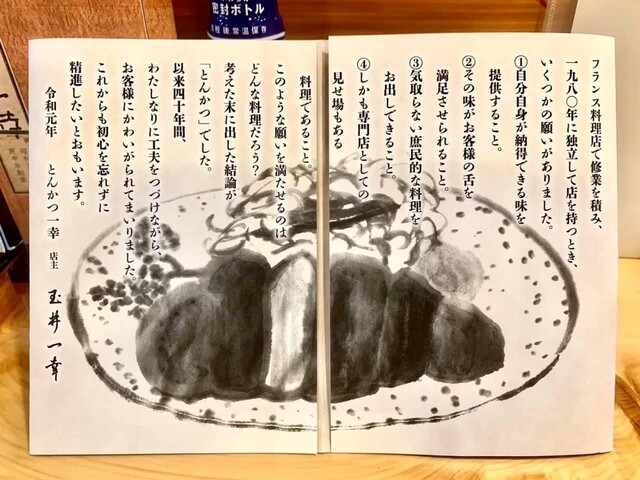 密封ボトル
開栓後常温保存
フランス料理店で修業を積み、
一九八〇年に独立して店を持つとき、
いくつかの願いがありました。
①自分自身が納得できる味を
提供すること。
②その味がお客様の舌を
満足させられること。
③気取らない庶民的な料理を
お出しできること。
④しかも専門店としての
見せ場もある
料理であること。
このような願いを満たせるのは
どんな料理だろう？
考えた末に出した結論が
「とんかつ」でした。
以来四十年間、
わたしなりに工夫をつづけながら、
お客様にかわいがられてまいりました。
これからも初心を忘れずに
精進したいとおもいます。
令和元年　とんかつ一幸　店主　玉井一幸